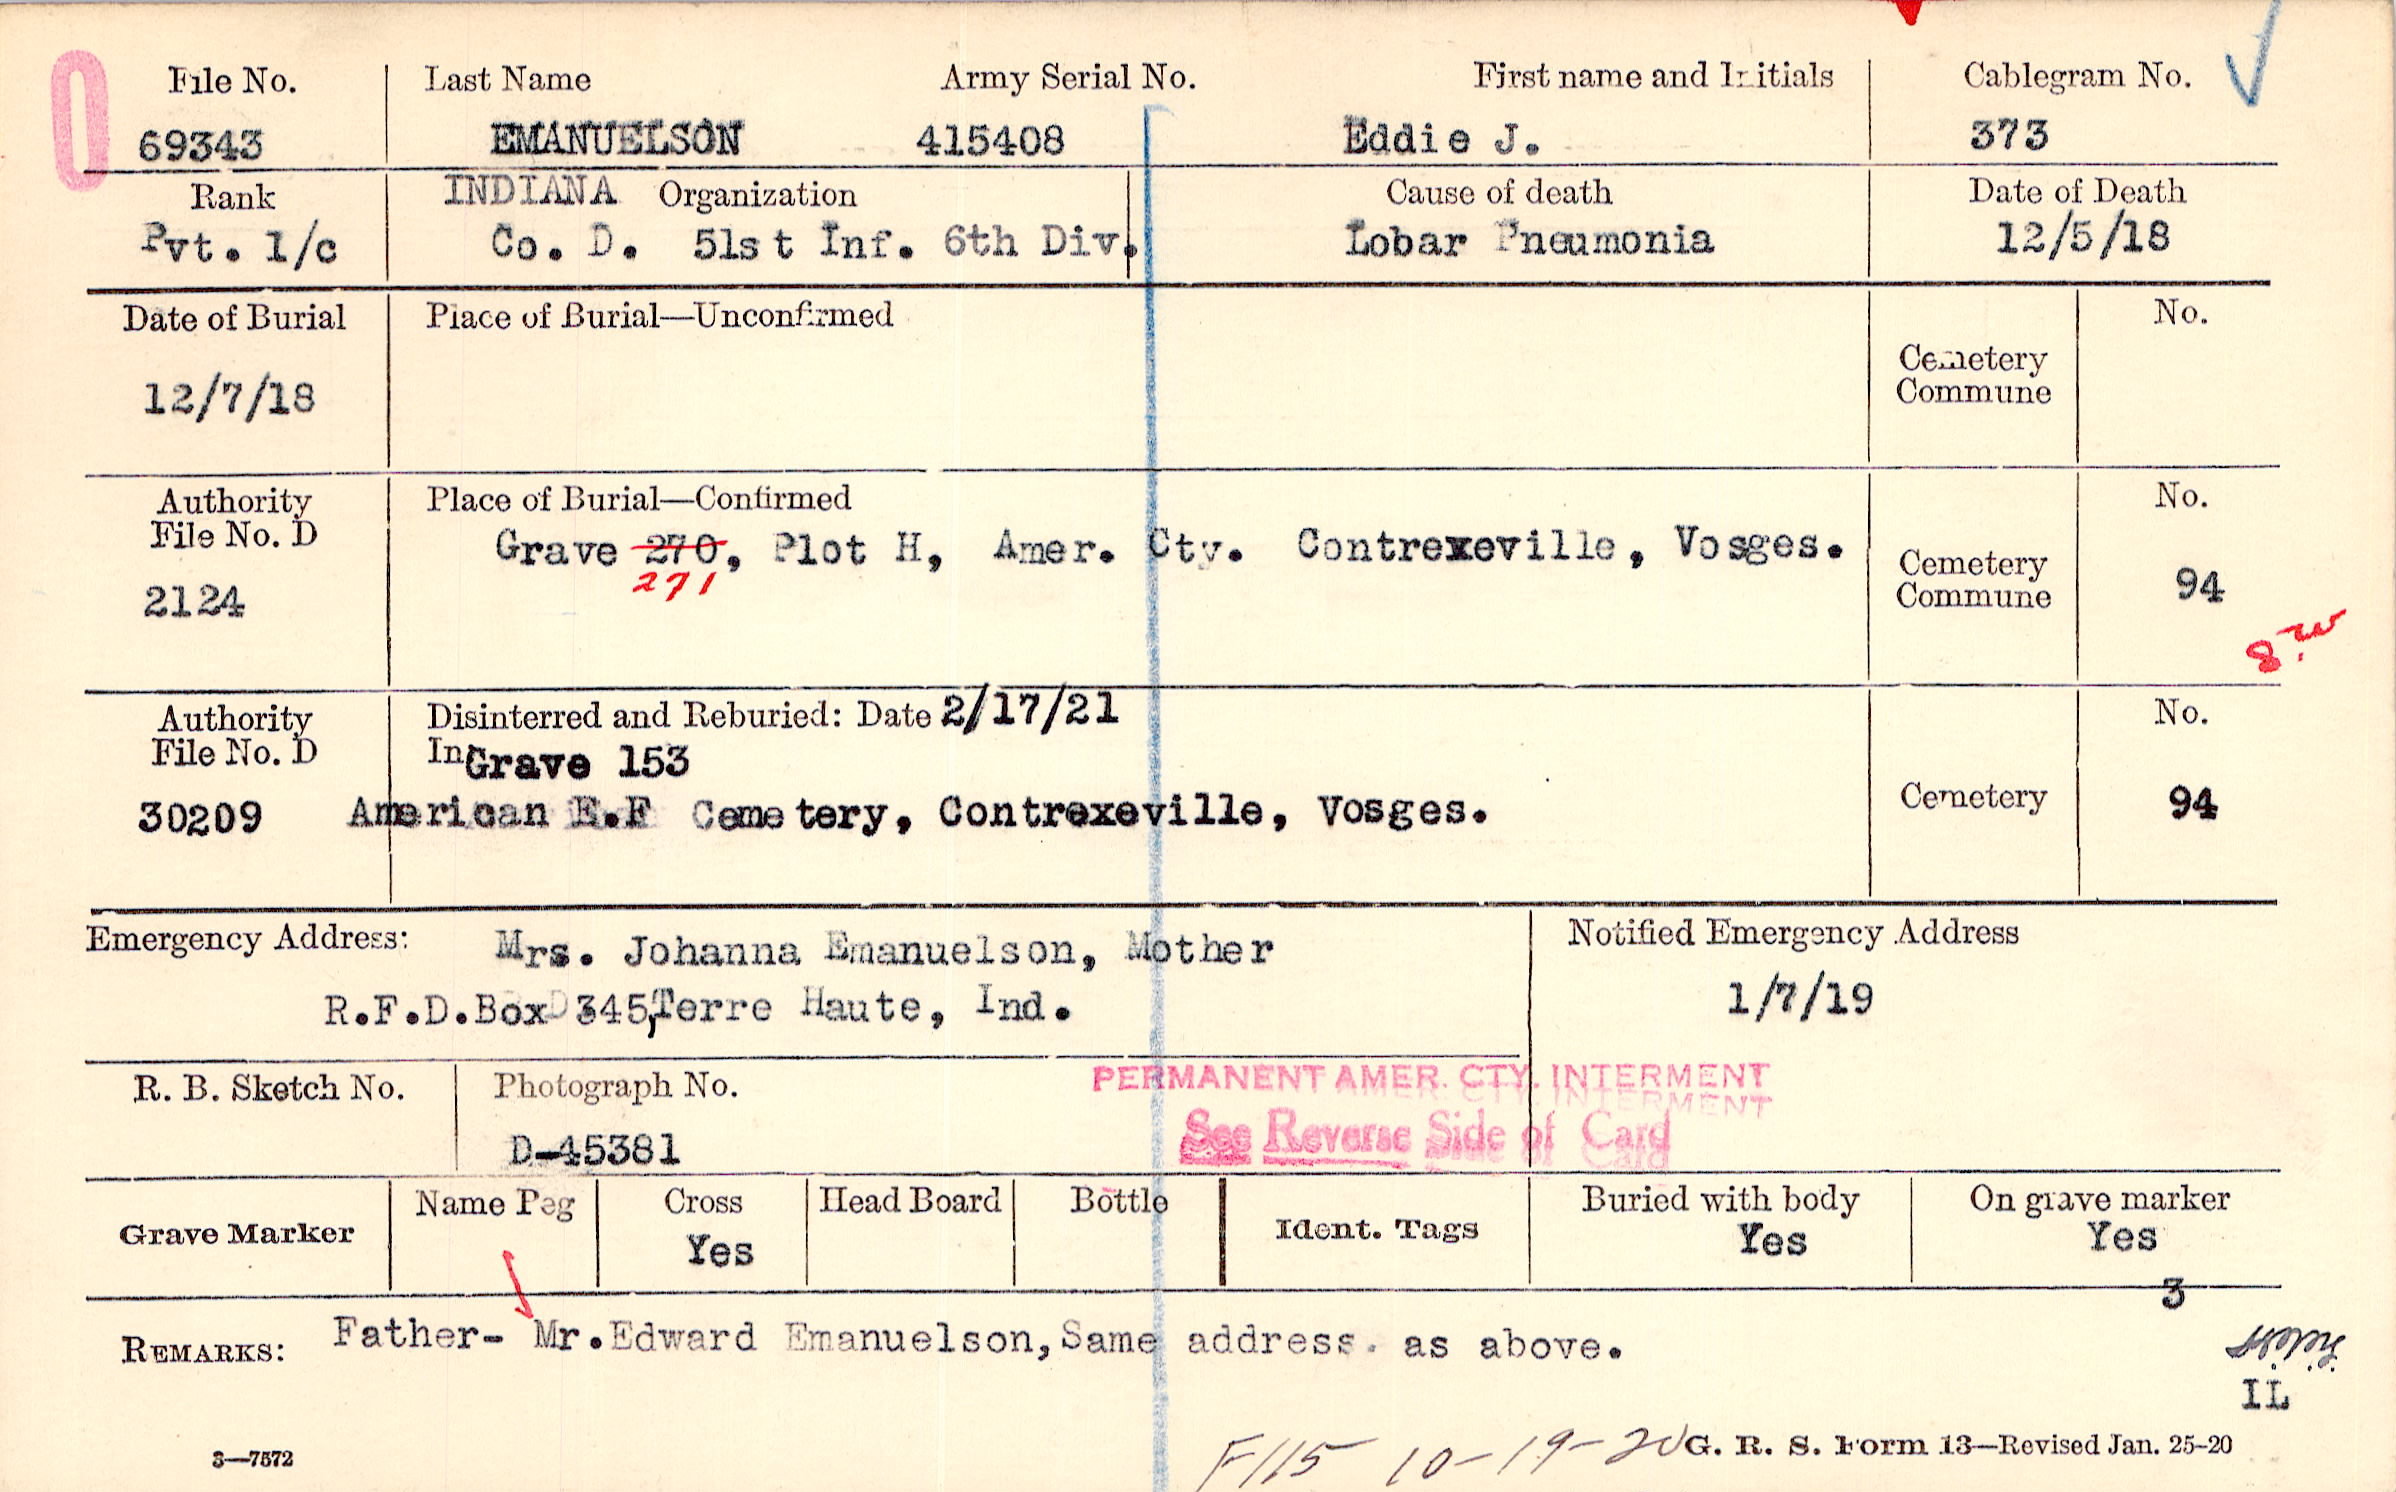 File No. Last Name Army Serial No. First name and Initials Cablegram No.
69343 EMANUELSON 415408 Eddie J. 373
Rank INDIANA Organization Cause of death Date of Death
Pvt. 1/c Co. D. 51st Inf. 6th Div. Lobar Pneumonia 12/5/18
Date of Burial Place of Burial—Unconfirmed No.
Cemetery
Commune
12/7/18
Authority Place of Burial—Confirmed No.
File No. D
Grave 270, Plot H, Amer. Cty. Contrexeville, Vosges.
271
Cemetery
Commune
2124 94
Authority Disinterred and Reburied: Date 2/17/21 No.
File No. D In Grave 153
30209 American E.F Cemetery, Contrexeville, Vosges. Cemetery 94
Emergency Address: Mrs. Johanna Emanuelson, Mother Notified Emergency Address
R.F.D.Box 345, Terre Haute, Ind. 1/7/19
R. B. Sketch No. Photograph No. PERMANENT AMER. CTY. INTERMENT
D-45381 See Reverse Side of Card
Grave Marker Name Peg Cross Head Board Bottle Ident. Tags Buried with body On grave marker
Yes Yes Yes
3
REMARKS: Father- Mr.Edward Emanuelson,Same address. as above.
IL
3—7572 F115 10-19-20 G. R. S. Form 13—Revised Jan. 25-20